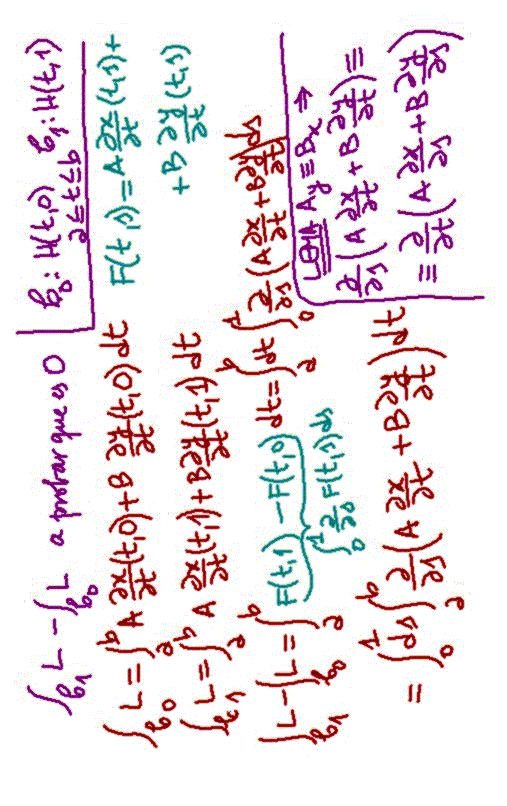 ∫_{b₁} L − ∫_{b₀} L a probar que es 0
b₀: H(t,0) b₁: H(t,1)
a ≤ t ≤ b
∫_{b₀} L = ∫_a^b A ∂x/∂t (t,0) + B ∂y/∂t (t,0) dt
F(t,s) = A ∂x/∂t (t,s) +
+ B ∂y/∂t (t,s)
∫_{b₁} L = ∫_a^b A ∂x/∂t (t,1) + B ∂y/∂t (t,1) dt
∫_{b₁} L − ∫_{b₀} L = ∫_a^b F(t,1) − F(t,0) dt = ∫_a^b dt ∫_0^1 ∂/∂s (A ∂x/∂t + B ∂y/∂t) ds
∫_0^1 ∂/∂s F(t,s) ds
= ∫_0^1 ds ∫_a^b ∂/∂s (A ∂x/∂t + B ∂y/∂t) dt
LEMA A_y ≡ B_x ⇒
∂/∂s (A ∂x/∂t + B ∂y/∂t) ≡
≡ ∂/∂t (A ∂x/∂s + B ∂y/∂s)